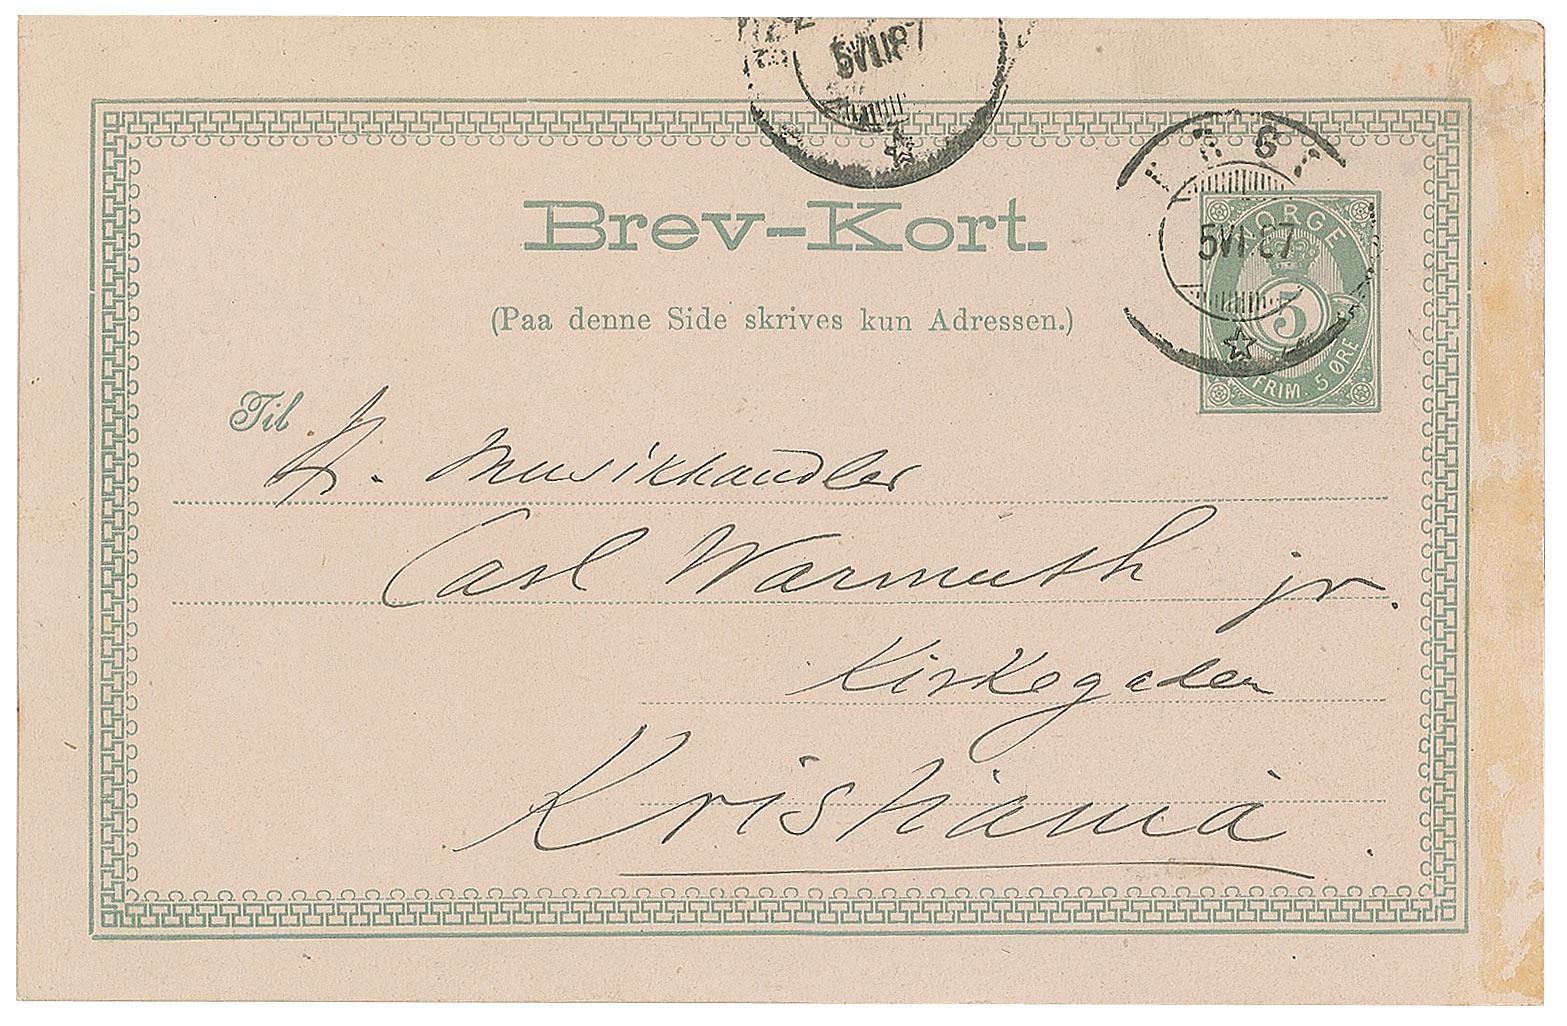 6VI 87
5VI 87
NORGE
5
FRIM. 5 ØRE
Brev-Kort.
(Paa denne Side skrives kun Adressen.)
Til
Hr. Musikhandler
Carl Warmuth jr.
Kirkegaden
Kristiania.